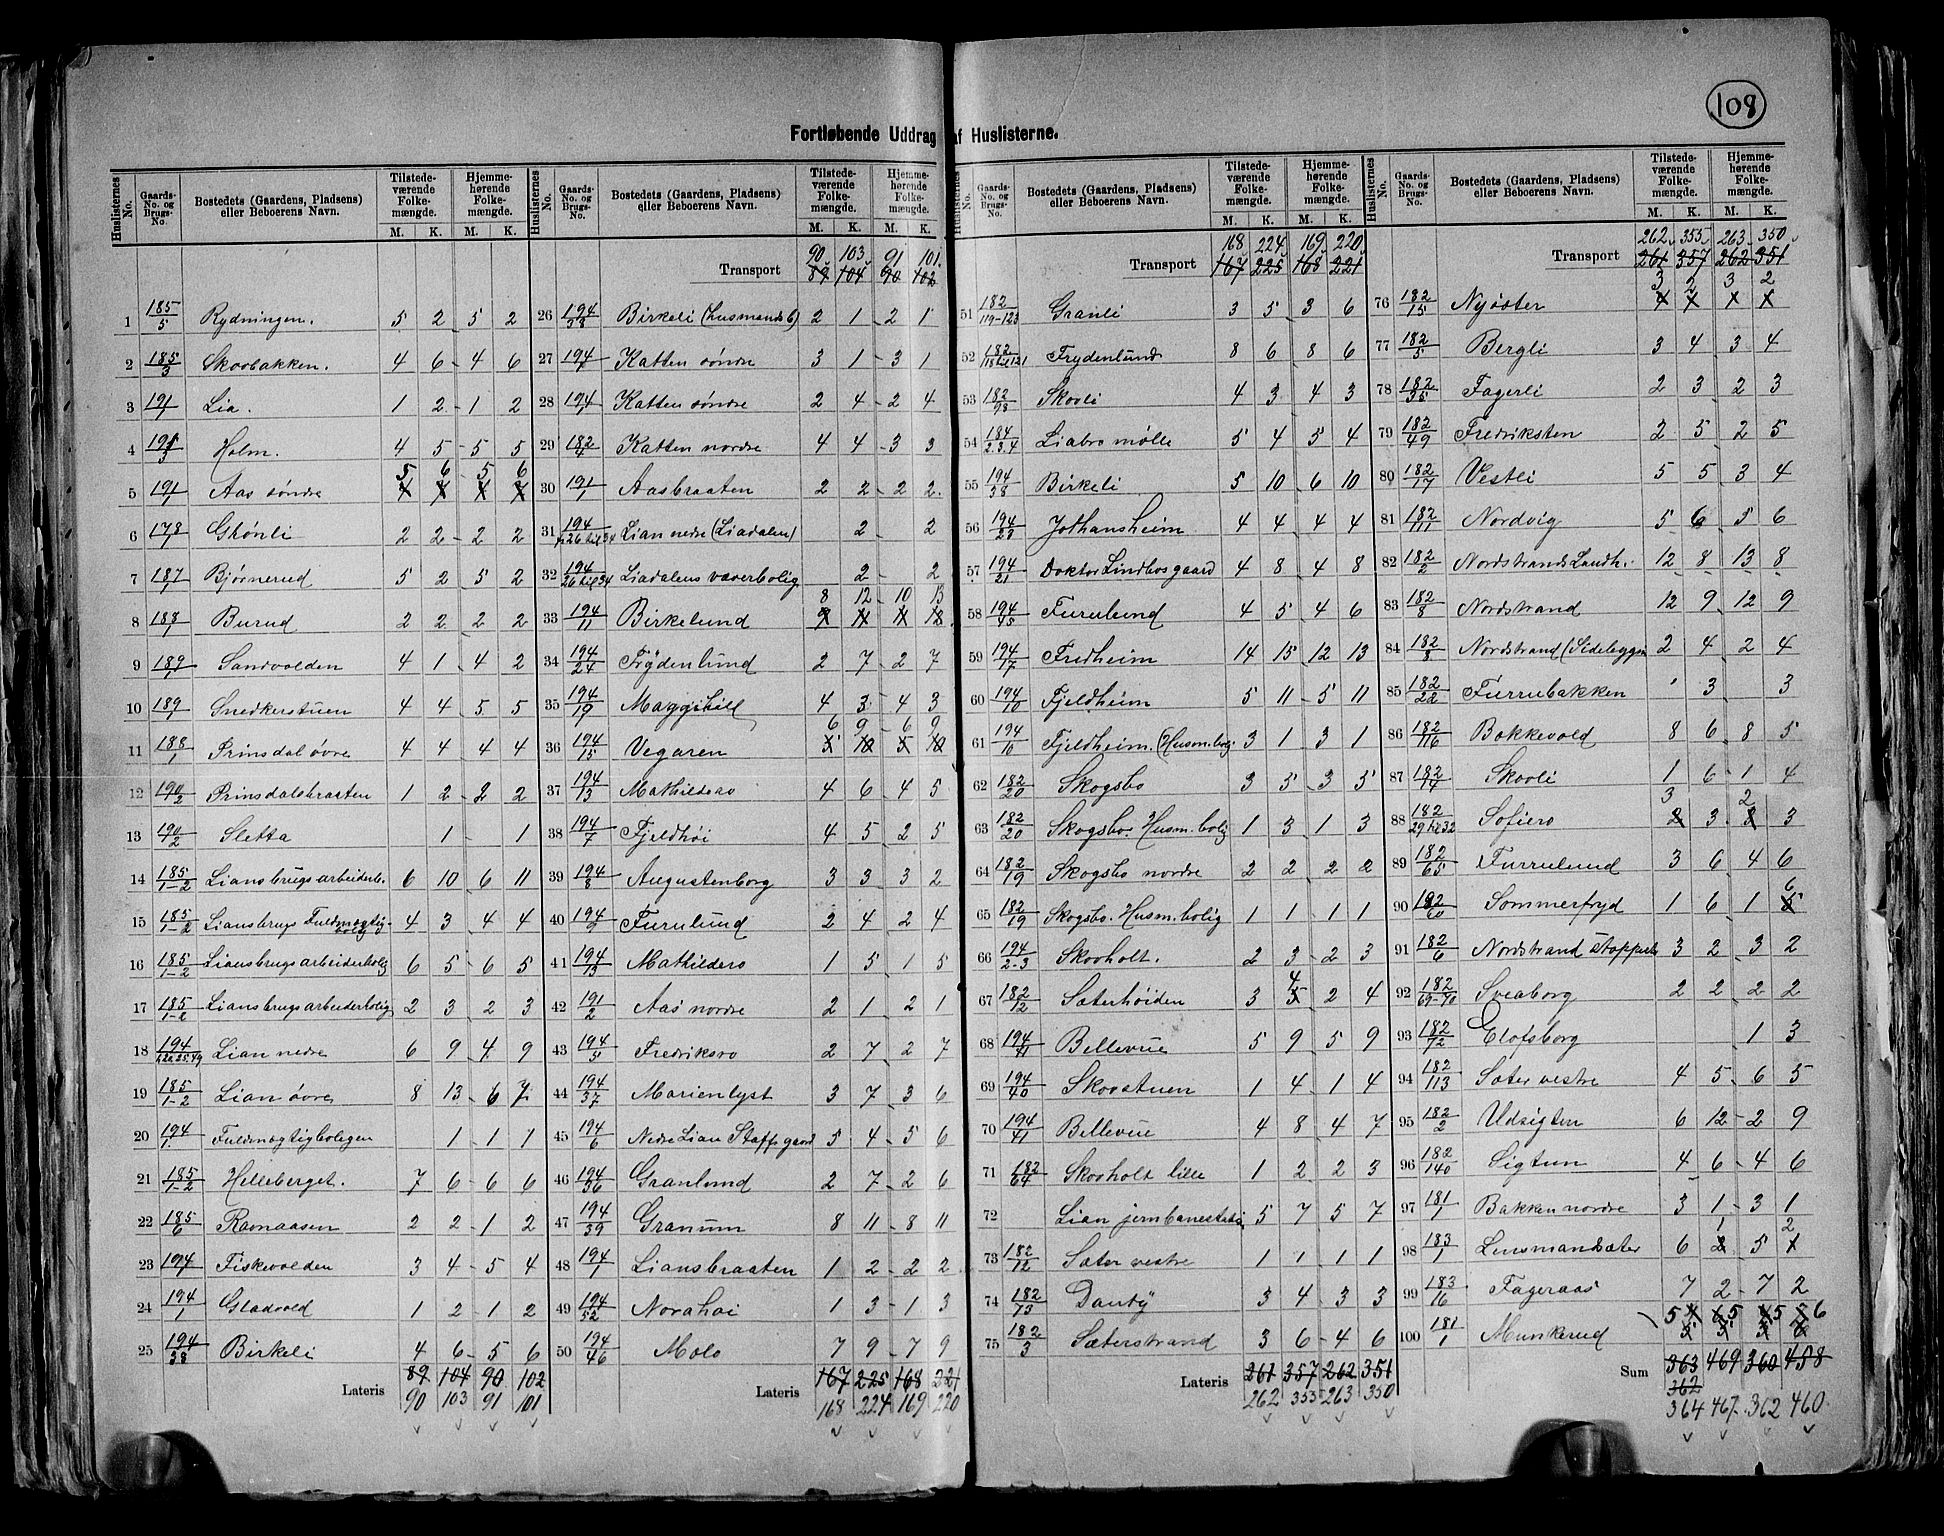 108
Fortløbende Uddrag af Huslisterne.
Huslisternes No. | Gaards-No. og Brugs-No. | Bostedets (Gaardens, Pladsens) eller Beboerens Navn. | Tilstedeværende Folkemængde. M. K. | Hjemmehørende Folkemængde. M. K.
1 185/5 Rydningen. 5 2 5 2
2 185/3 Skovbakken. 4 6 4 6
3 191/1 Lia. 1 2 1 2
4 Holm. 4 5 5 5
5 191/1 Aas søndre 5 6 5 6
6 178/1 Grønli 2 2 2 2
7 187/1 Bjørnerud 5 2 5 2
8 188/1 Burud 2 2 2 2
9 189/1 Sandvolden 4 1 4 2
10 189/1 Snedkerstuen 4 4 5 5
11 188/1 Prinsdal øvre 4 4 4 4
12 190/2 Prinsdalsbraaten 1 2 2 2
13 190/2 Sletta 1 1
14 185/1-2 Liansbrugs arbeiderb. 6 10 6 11
15 185/1-2 Liansbrugs Fuldmægtigbolig 4 3 4 4
16 185/1-2 Liansbrugs arbeiderbolig 6 5 6 5
17 185/1-2 Liansbrugs arbeiderbolig 2 3 2 3
18 194 Lian nedre 6 9 4 9
19 185/1-2 Lian øvre 8 13 6 7
20 194/1 Fuldmægtigboligen 1 1 1
21 185/1-2 Helleberget. 7 6 6 6
22 185/6 Ravnaasen 2 2 1 2
23 194/1 Fiskevolden 3 4 5 4
24 194/1 Gladvold 1 2 1 2
25 194/38 Birkeli 4 6 5 6
Lateris 89 104 90 102
90 103 91 101
Huslisternes No. | Gaards-No. og Brugs-No. | Bostedets (Gaardens, Pladsens) eller Beboerens Navn. | Tilstedeværende Folkemængde. M. K. | Hjemmehørende Folkemængde. M. K.
90 103 91 101
Transport 89 104 90 102
26 194/38 Birkeli (Husmandsb) 2 1 2 1
27 194/1 Katten søndre 3 1 3 1
28 194/1 Katten søndre 2 4 2 4
29 182/4 Katten nordre 4 4 3 3
30 191/1 Aasbraaten 2 2 2 2
31 194/26 til 34 Lian nedre (Liadalen) 2 2
32 194/26 til 34 Liadalens væverbolig 2 2
33 194/11 Birkelund 8 12 10 13
34 194/24 Frydenlund 2 7 2 7
35 194/19 Maggihill 4 3 4 3
36 194/15 Vegaren 6 9 6 9
37 194/13 Mathildero 4 6 4 5
38 194/7 Fjeldhøi 4 5 2 5
39 194/8 Augustenborg 3 3 3 2
40 194/2 Furulund 2 4 2 4
41 194/13 Mathildero 1 5 1 5
42 191/2 Aas nordre 2 1 2 1
43 194/51 Fredriksro 2 7 2 7
44 194/37 Marienlyst 3 7 3 6
45 194/6 Nedre Lian Stoppegaard 5 4 5 6
46 194/36 Granlund 2 7 2 6
47 194/39 Granum 8 11 8 11
48 194/1 Liansbraaten 1 2 2 2
49 194/52 Norahøi 1 3 1 3
50 194/46 Molo 7 9 7 9
Lateris 167 225 168 221
168 224 169 220
Huslisternes No. | Gaards-No. og Brugs-No. | Bostedets (Gaardens, Pladsens) eller Beboerens Navn. | Tilstedeværende Folkemængde. M. K. | Hjemmehørende Folkemængde. M. K.
168 224 169 220
Transport 167 225 168 221
51 182/119-123 Granli 3 5 3 6
52 182/118 til 121 Frydenlund 8 6 8 6
53 182/98 Skovli 4 3 4 3
54 184/2.3.4 Liabro mølle 5 4 5 4
55 194/38 Birkeli 5 10 6 10
56 194/23 Johansheim 4 4 4 4
57 194/21 Doktor Lindbos gaard 4 8 4 8
58 194/45 Furulund 4 5 4 6
59 194/17 Fredheim 14 15 12 13
60 194/10 Fjeldheim 5 11 5 11
61 194/10 Fjeldheim (Husm.bolig 3 1 3 1
62 182/20 Skogsbo 3 5 3 5
63 182/20 Skogsbo. Husm.bolig 1 3 1 3
64 182/19 Skogsbo nordre 2 2 2 2
65 182/19 Skogsbo. Husm.bolig 1 1 1 1
66 194/2-3 Skovholt. 2 3 2 3
67 182/12 Sæterhøiden 3 4 2 4
68 194/41 Bellevue 5 9 5 9
69 194/40 Skovstuen 1 4 1 4
70 194/41 Bellevue 4 8 4 7
71 182/64 Skovholt lille 1 2 2 3
72 Lian jernbanestation 5 7 5 7
73 182/12 Sæter vestre 1 1 1 1
74 182/73 Danby 3 4 3 3
75 182/3 Sæterstrand 3 6 4 6
Lateris 261 357 262 351
262 353 263 350
Huslisternes No. | Gaards-No. og Brugs-No. | Bostedets (Gaardens, Pladsens) eller Beboerens Navn. | Tilstedeværende Folkemængde. M. K. | Hjemmehørende Folkemængde. M. K.
262 355 263 350
Transport 261 357 262 351
76 182/15 Nysæter 3 2 3 2
77 182/5 Bergli 3 4 3 4
78 182/35 Fagerli 2 3 2 3
79 182/49 Fredriksten 2 5 2 5
80 182/17 Vestli 5 5 3 4
81 182/111 Nordvig 5 6 5 6
82 182/2 Nordstrands Landh. 12 8 13 8
83 182/8 Nordstrand 12 9 12 9
84 182/8 Nordstrand (Sidebygn 2 4 2 4
85 182/22 Furrubakken 3 3
86 182/116 Bakkevold 8 6 8 5
87 182/14 Skovli 1 6 1 4
88 182/29 til 32 Sofiero 3 3 2 3
89 182/65 Furrulund 3 6 4 6
90 182/60 Sommerfryd 1 6 1 6
91 182/6 Nordstrand stoppest 3 2 3 2
92 182/69-70 Sveaborg 2 2 2 2
93 182/72 Elofsborg 1 3
94 182/113 Sæter vestre 4 5 6 5
95 182/2 Udsigten 6 12 2 9
96 182/140 Sigtun 4 6 4 6
97 181/1 Bakken nordre 3 1 3 1
98 183/1 Lensmandsæter 6 1 5 2
99 183/16 Fageraas 7 2 7 2
100 181/1 Munkerud 5 5 5 6
Sum 363 469 360 458
362
364 467 362 460